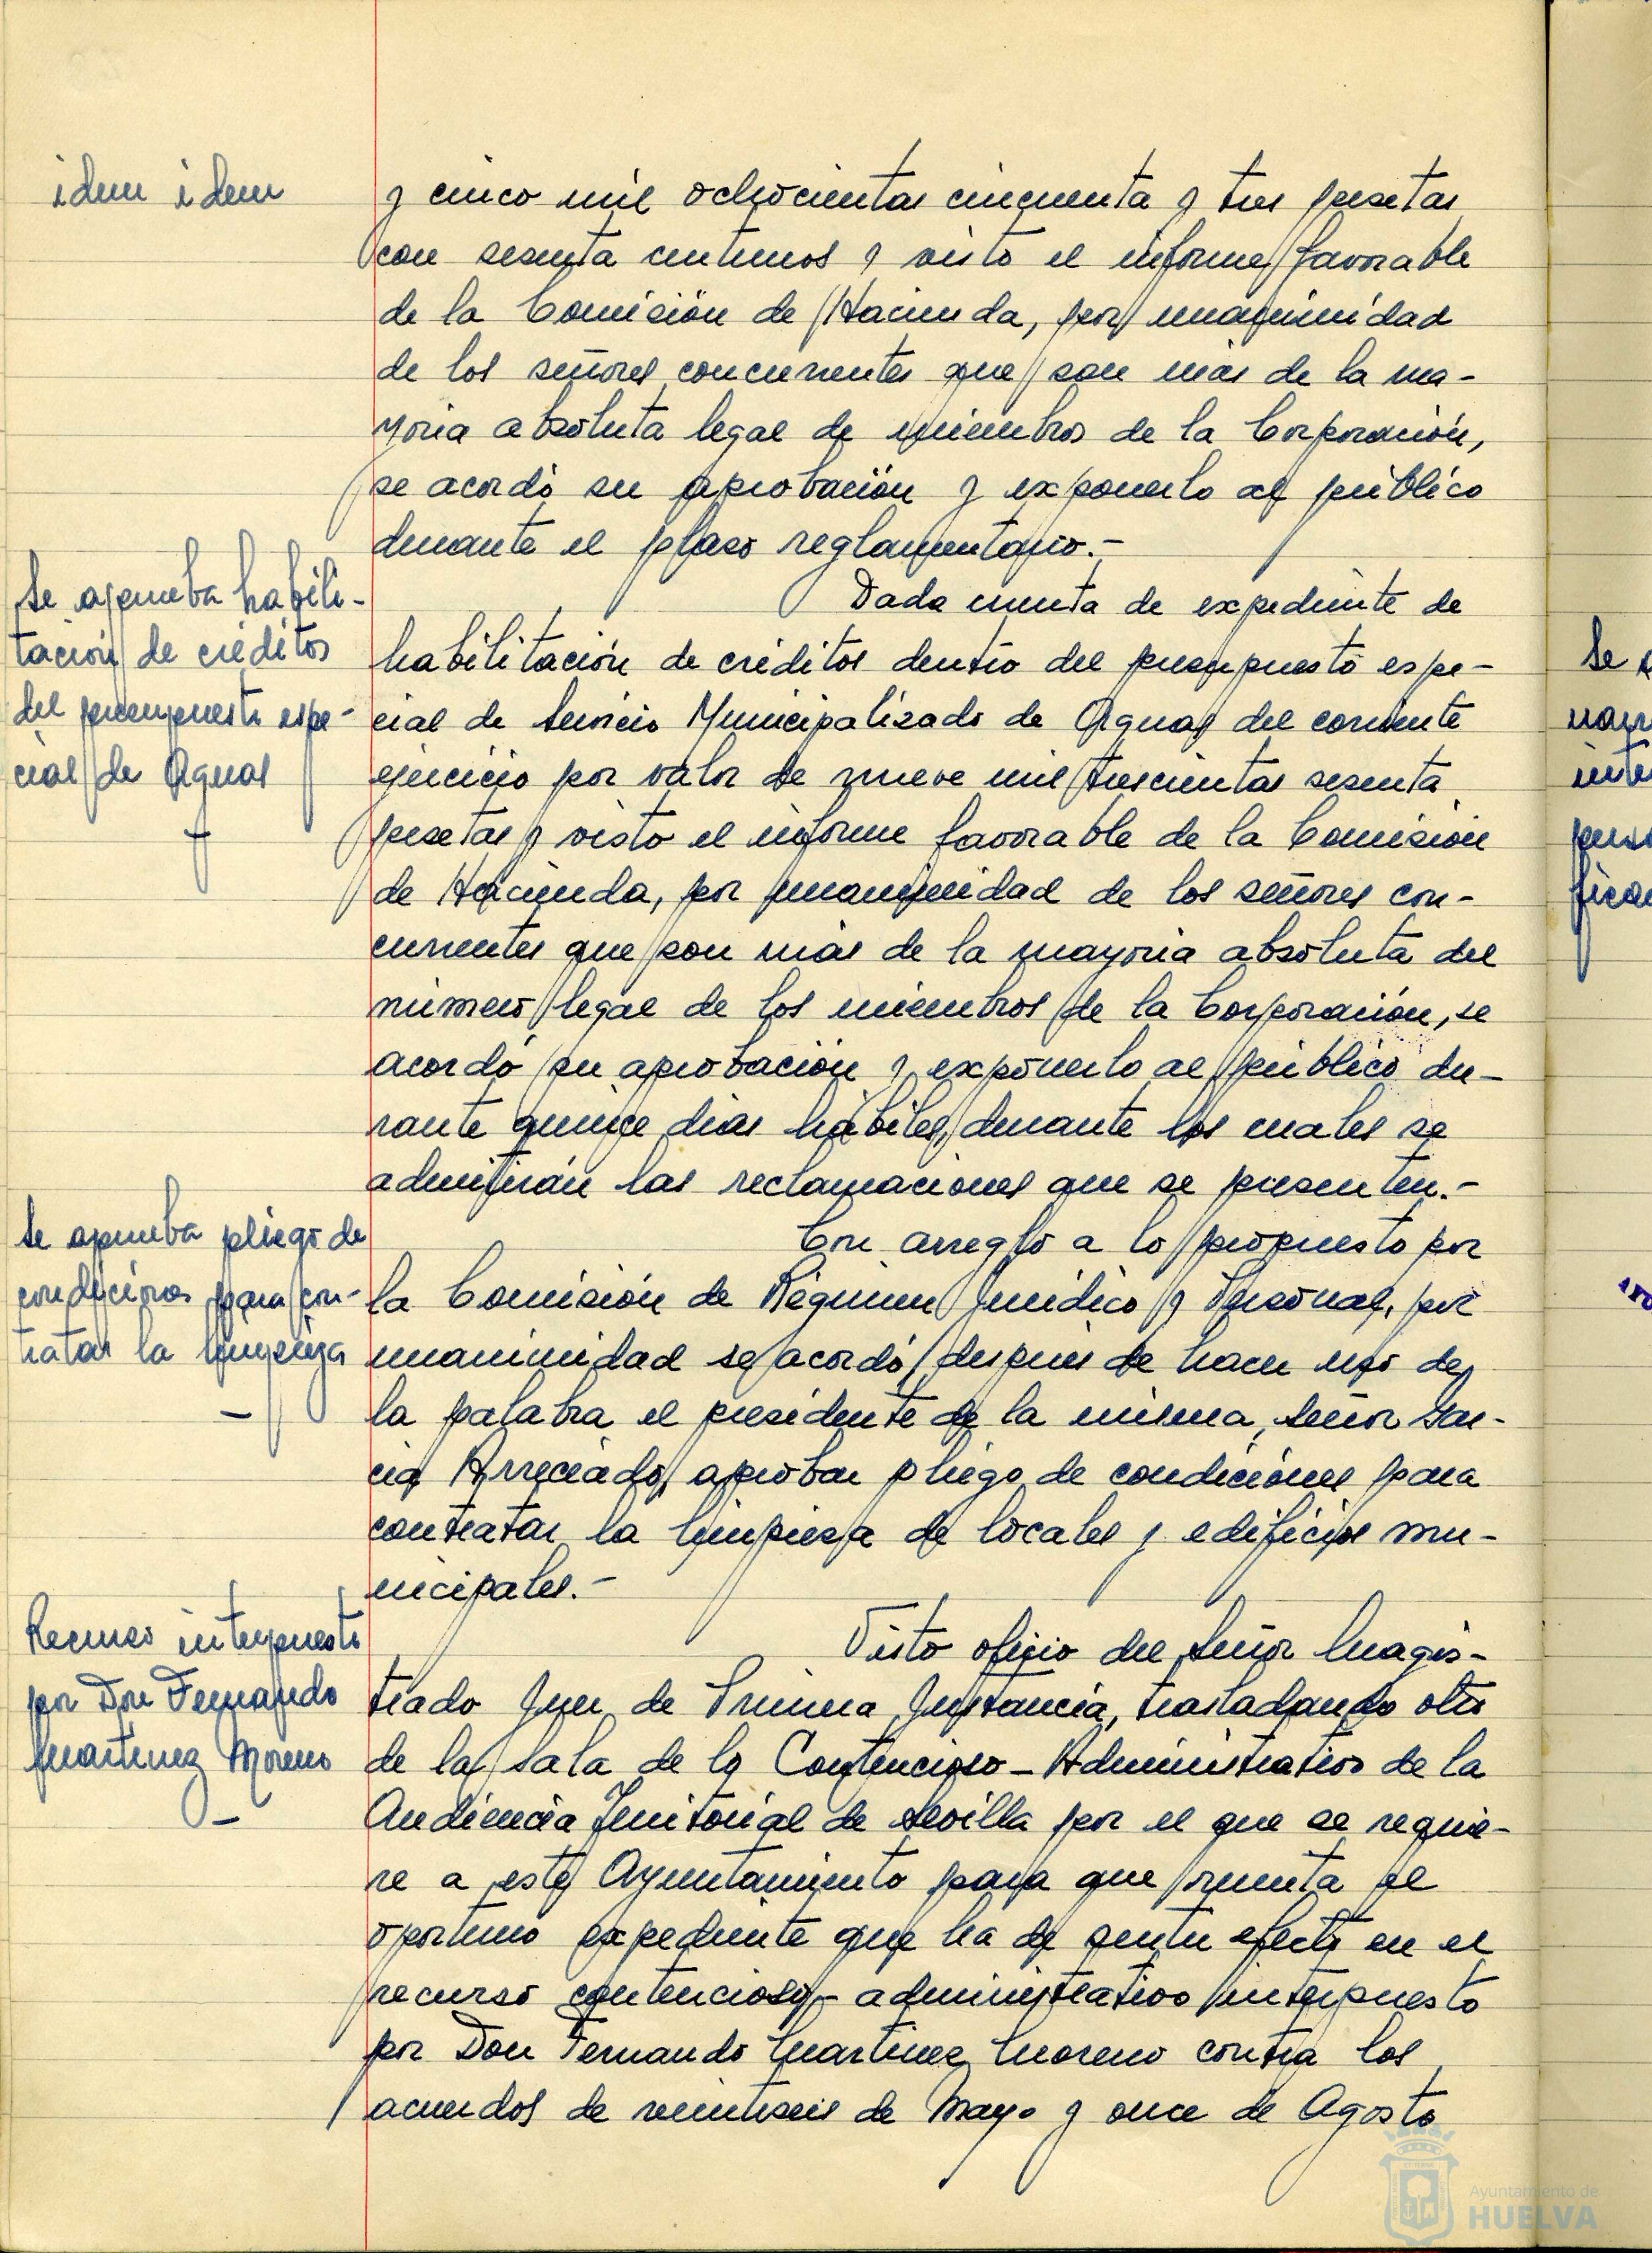 idem idem
y cinco mil ochocientas cincuenta y tres pesetas
con sesenta centimos y visto el informe favorable
de la Comisión de Hacienda, por unanimidad
de los señores concurrentes que son más de la ma-
yoria absoluta legal de miembros de la Corporación,
se acordó su aprobación y exponerlo al público
durante el plazo reglamentario.-
Se aprueba habili-
tación de créditos
del presupuesto espe-
cial de Aguas
Dada cuenta de expediente de
habilitación de créditos dentro del presupuesto espe-
cial de Servicio Municipalizado de Aguas del corriente
ejercicio por valor de nueve mil trescientas sesenta
pesetas y visto el informe favorable de la Comisión
de Hacienda, por unanimidad de los señores con-
currentes que son más de la mayoria absoluta del
número legal de los miembros de la Corporación, se
acordó su aprobación y exponerlo al público du-
rante quince dias hábiles, durante los cuales se
admitirán las reclamaciones que se presenten.-
Se aprueba pliego de
condiciones para con-
tratar la limpieza
Con arreglo a lo propuesto por
la Comisión de Régimen Juridico y Personal, por
unanimidad se acordó, después de hacer uso de
la palabra el presidente de la misma, Señor Gar-
cia Arreciado, aprobar pliego de condiciones para
contratar la limpieza de locales y edificios mu-
nicipales.-
Recurso interpuesto
por Don Fernando
Martinez Moreno
Visto oficio del Señor Magis-
trado Juez de Primera Instancia, trasladando otro
de la Sala de lo Contencioso-Administrativo de la
Audiencia Territorial de Sevilla por el que se requie-
re a este Ayuntamiento para que remita el
oportuno expediente que ha de surtir efecto en el
recurso contencioso-administrativo interpuesto
por Don Fernando Martinez Moreno contra los
acuerdos de veintiseis de Mayo y once de Agosto
Se
Ayuntamiento de
HUELVA